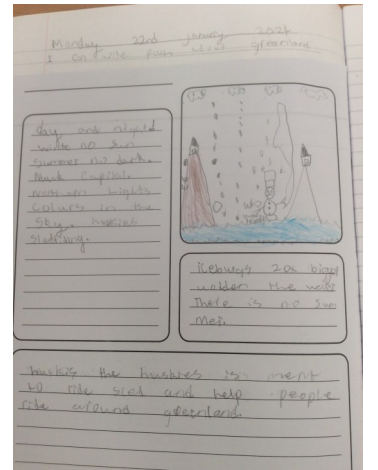 Monday 22nd january 2024
I can write facts about greenland
day and night
winter no sun
Summer no dark.
Nuuk Capital.
northern lights
colours in the
sky. huskies
icebergs 20x bigger
under the water
There is no Sun
huskis the huskies is ment
to ride sled and help people
ride around greenland.